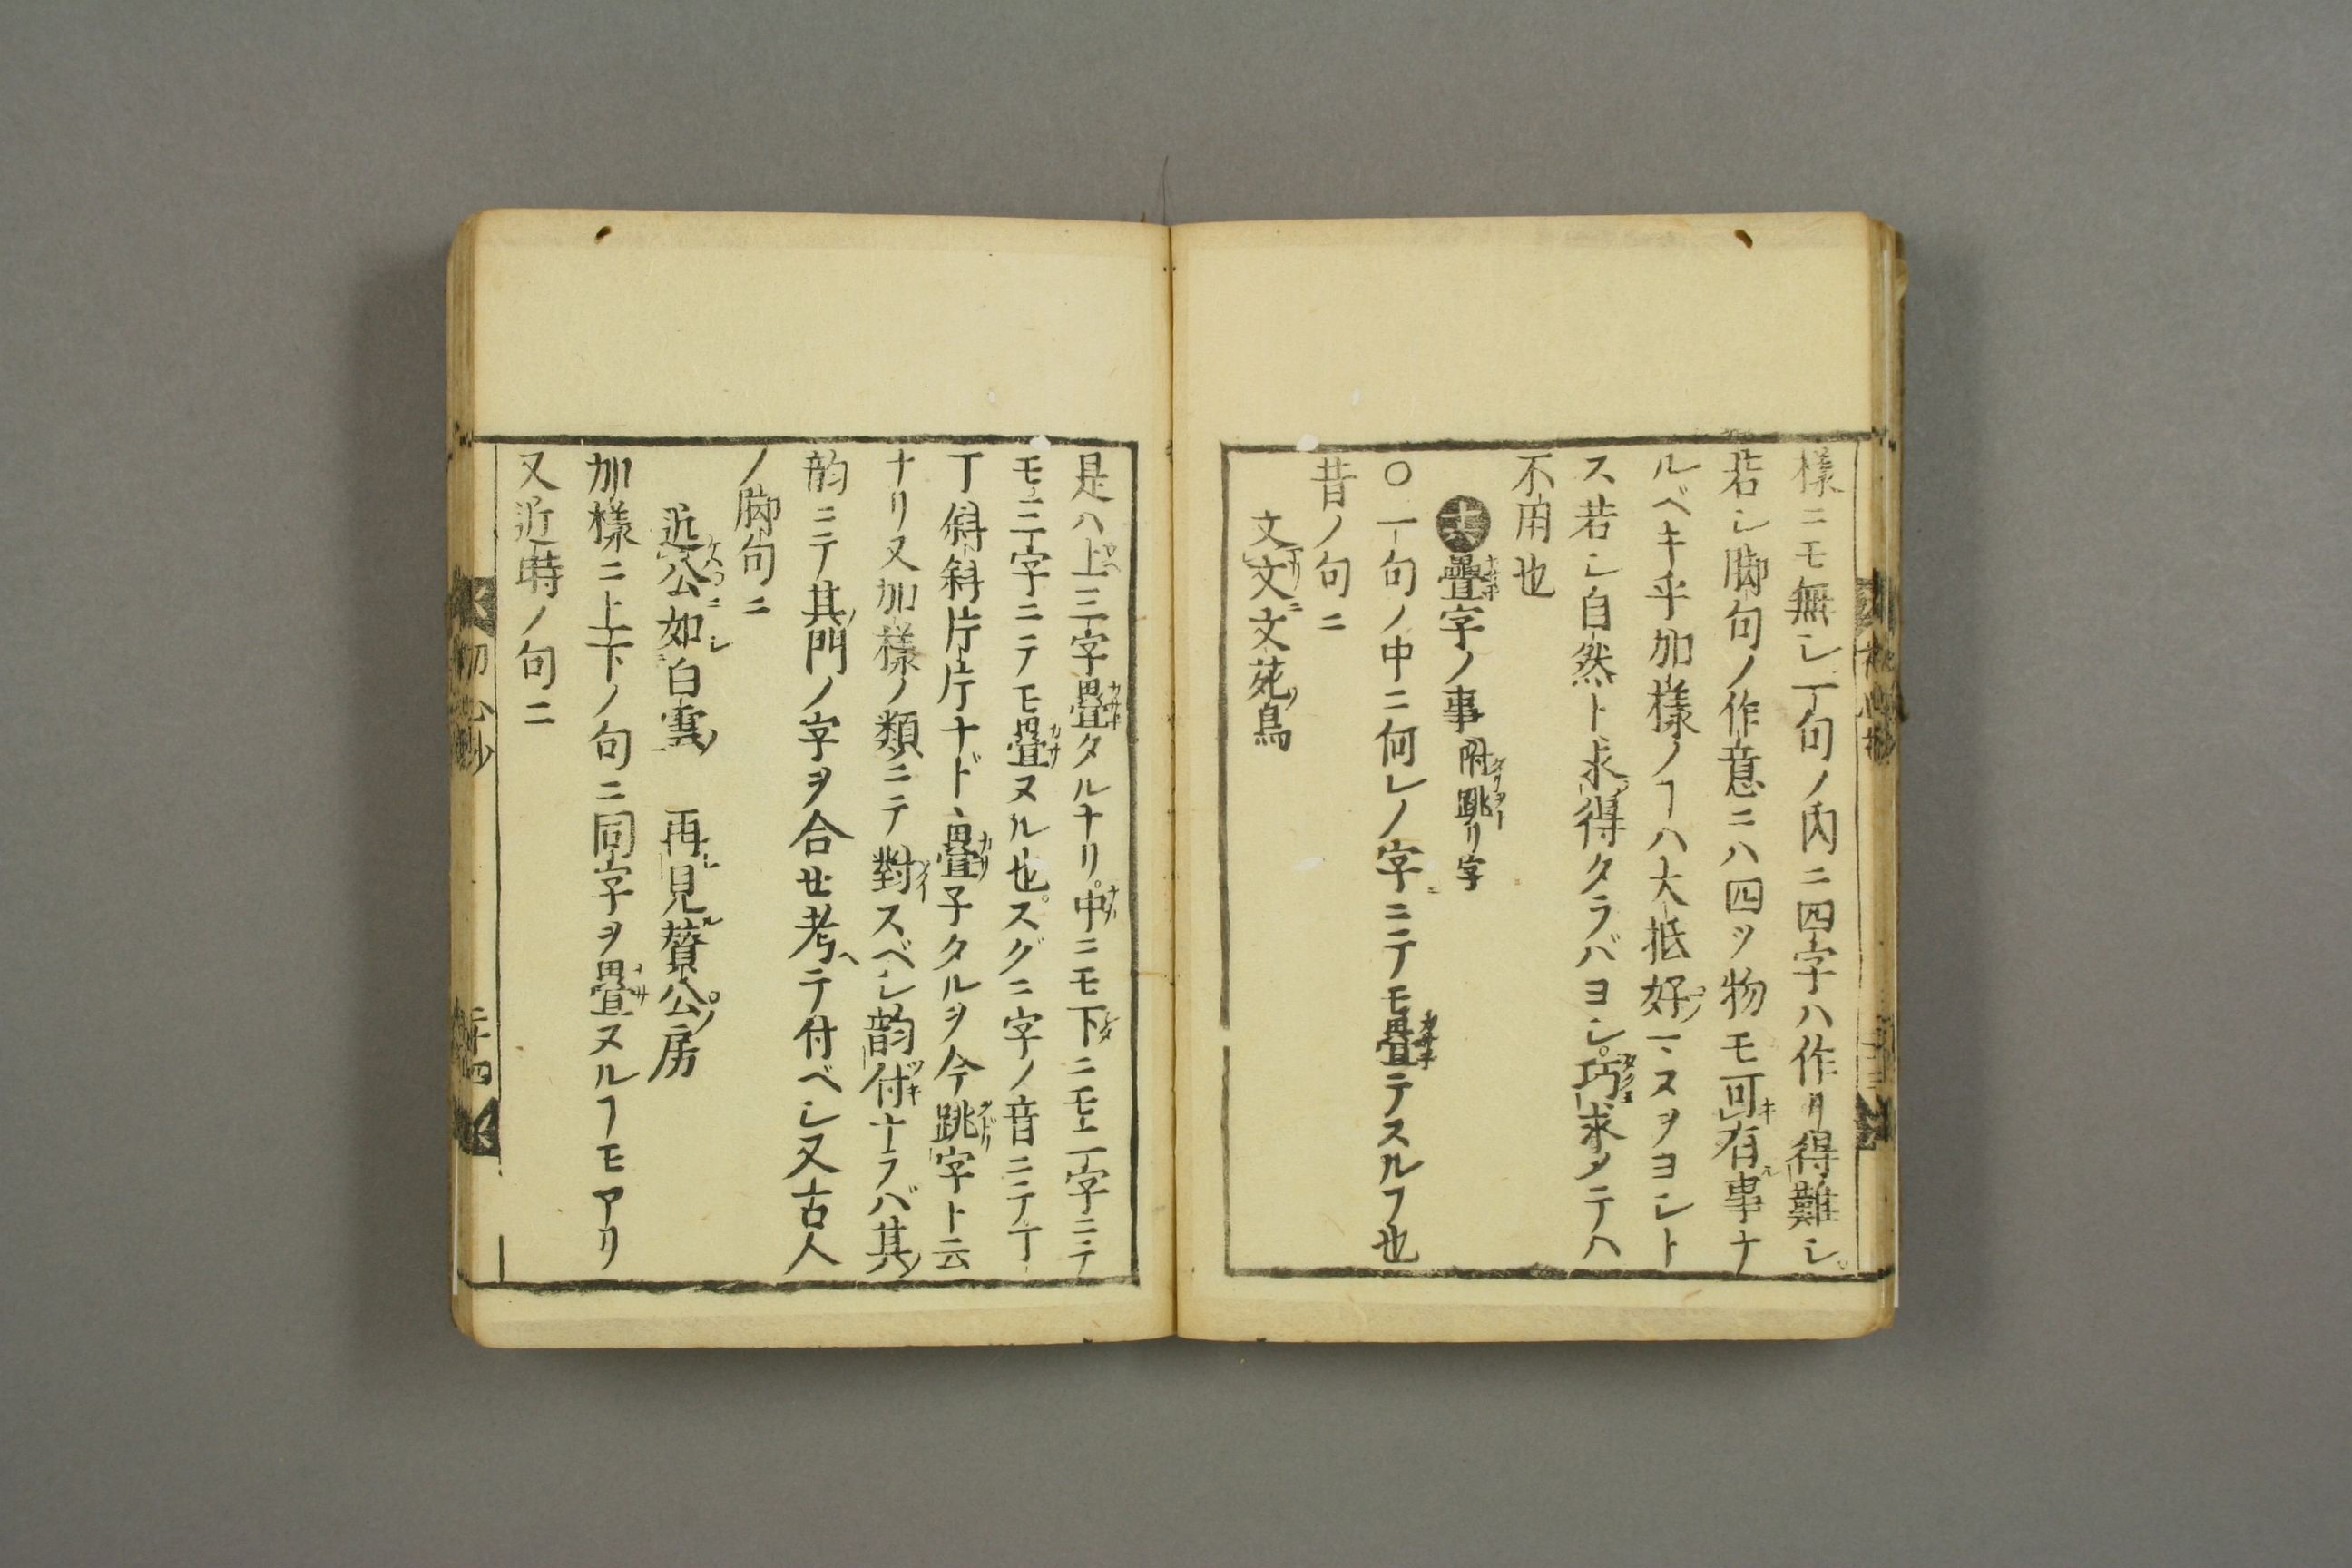 樣ニモ無シ一句ノ内ニ四字ハ作リ得難シ。
若シ脚句ノ作意ニハ四ツ物モ可キ有ル事ナ
ルベキ乎加樣ノヿハ大抵好ンマヌヲヨシト
ス若シ自然ト求得タラバヨシ。巧求タテハ
不用也
十六疊字ノ事 附跳リ字
○一句ノ中ニ何レノ字ニテモ疊テスルヿ也
昔ノ句ニ
文文文苑ノ鳥
是ハ上三字疊タルナリ。中ニモ下ニモ二字ニテ
モ三字ニテモ疊ヌル也。スグニ字ノ音ニテ丁
丁斜斜片片ナド、疊子タルヲ今跳字ト云
ナリ又加樣ノ類ニテ對スベシ韵付ナラバ其ノ
韵ニテ其ノ門ノ字ヲ合せ考ヘテ付ベシ又古人
ノ脚句ニ
近公如白雲 再見賛公ノ房
加樣ニ上下ノ句ニ同字ヲ疊ヌルヿモアリ
又近時ノ句ニ